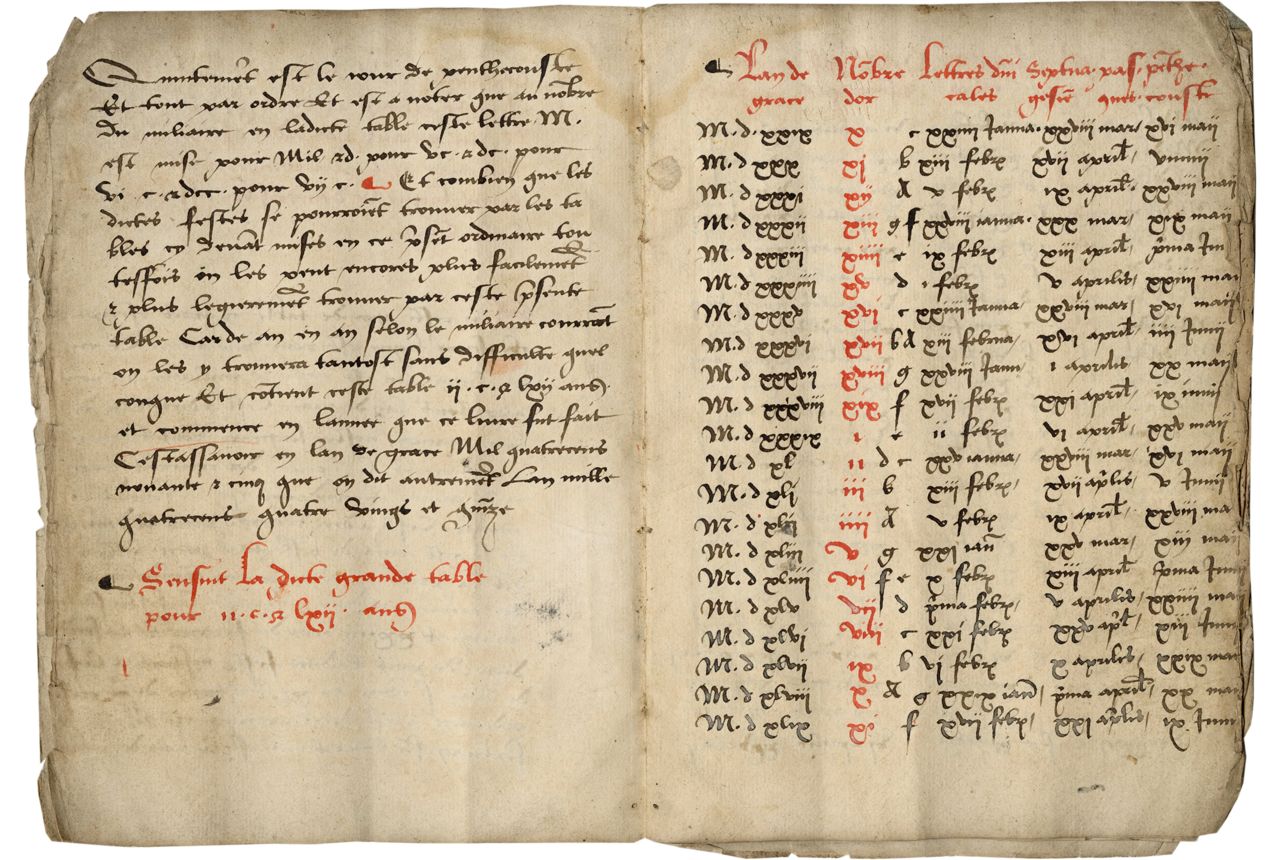 Quintemēt est le iour de penthecouste
Et tout par ordre Et est a noter que au nōbre
du miliaire en ladicte table ceste lettre M.
est mise pour Mil ⁊ d. pour vc. ⁊ dc. pour
vi . c . ⁊ dcc . pour vij c . Et combien que les
dictes festes se pourroiēt trouuer par les ta
bles cy deuāt mises en ce p̄sēt ordinaire tou
teffois on les peut encores plus facilemēt
⁊ plus legieremēt trouuer par ceste p̄sente
table Car de an en an selon le miliaire courrāt
on les y trouuera tantost sans difficulte quel
conque Et cōtient ceste table ii . c . ⁊ lxii ans
et commence en lannee que ce liure fut fait
Cestassauoir en lan de grace Mil quatrecens
nonante ⁊ cinq que on dit autremēt Lan mille
quatrecens quatre vings et quīze
Sensuit La dicte grande table
pour ii . c . ⁊ lxii . ans
Lan de Nōbre Lettres dn̄i Septua . pas . pēthe .
grace dor cales gesiē ques . couste
M . d xxix x c xxiiii Janua . xxviii mar . xvi maii
M . d xxx xi b xiii febr xvii april
M . d xxxi xii A v febr ix april xxviii maii
M . d xxxii xiii g f xxviii ianua . xxx mar . xix maii
M . d xxxiii xiiii e ix febr xiii april p̄ma Jun
M . d xxxiiii xv d i febr v aprilis xxiiii mai
M . d xxxv xvi c xxiiii Janua xxviii mar xvi maii
M . d xxxvi xvii b A xiii februa xvi april iiii Junii
M . d xxxvii xviii g xxviii Janu i aprilis xx maii
M . d xxxviii xix f xvii febr xxi april ix iunii
M . d xxxix i e ii febr vi april xxv maii
M . d xl ii d c xxv ianua xxviii mar xvi maii
M . d xli iii b xiii febr xvii ap̄lis v Junii
M . d xlii iiii A v febr ix april xxviii ma
M . d xliii v g xxi ian̄ xxv mar xiii mai
M . d xliiii vi f e x febr xiii april p̄ma Jun
M . d xlv vii d p̄ma febr v aprilis xxiiii mai
M . d xlvi viii c xxi febr xxv ap̄l xiii Jun
M . d xlvii ix b vi febr x aprilis xxix mai
M . d xlviii x A g xxix ian̄ p̄ma april xx mai
M . d xlix xi f xvii febr xxi ap̄lis ix Jun